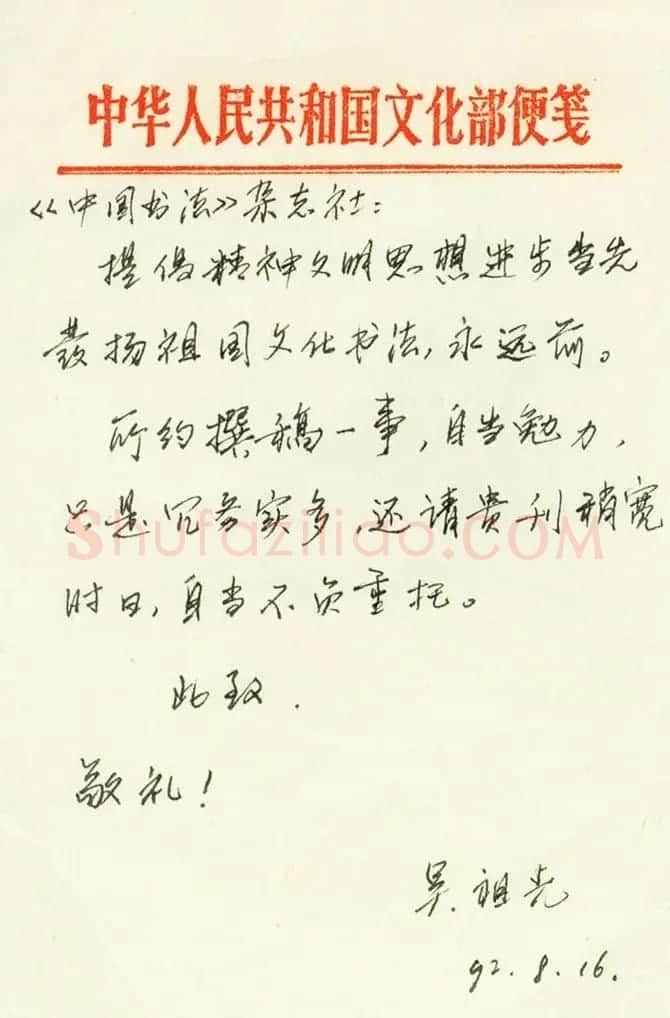 中华人民共和国文化部便笺
《中国书法》杂志社:
提倡精神文明思想进步当先
發扬祖国文化书法,永远前。
所约撰稿一事,自当勉力,
只是冗务实多,还请贵刊稍宽
时日,自当不负重托。
此致.
敬礼!
吴祖光
92.8.16.
Shufaziliao.com